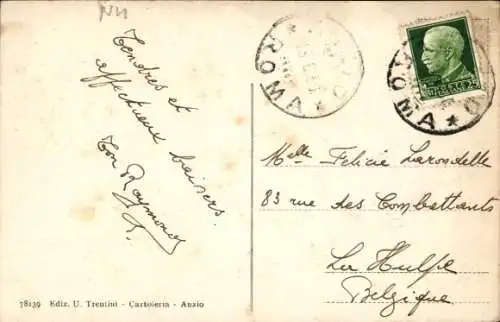 Tendres et
affectueux baisers.
Ton Raymond
ROMA
ROMA
Melle Felicie Larondelle
83 rue des Combattants
La Hulpe
Belgique
78139 Ediz. U. Trentini - Cartoleria - Anzio